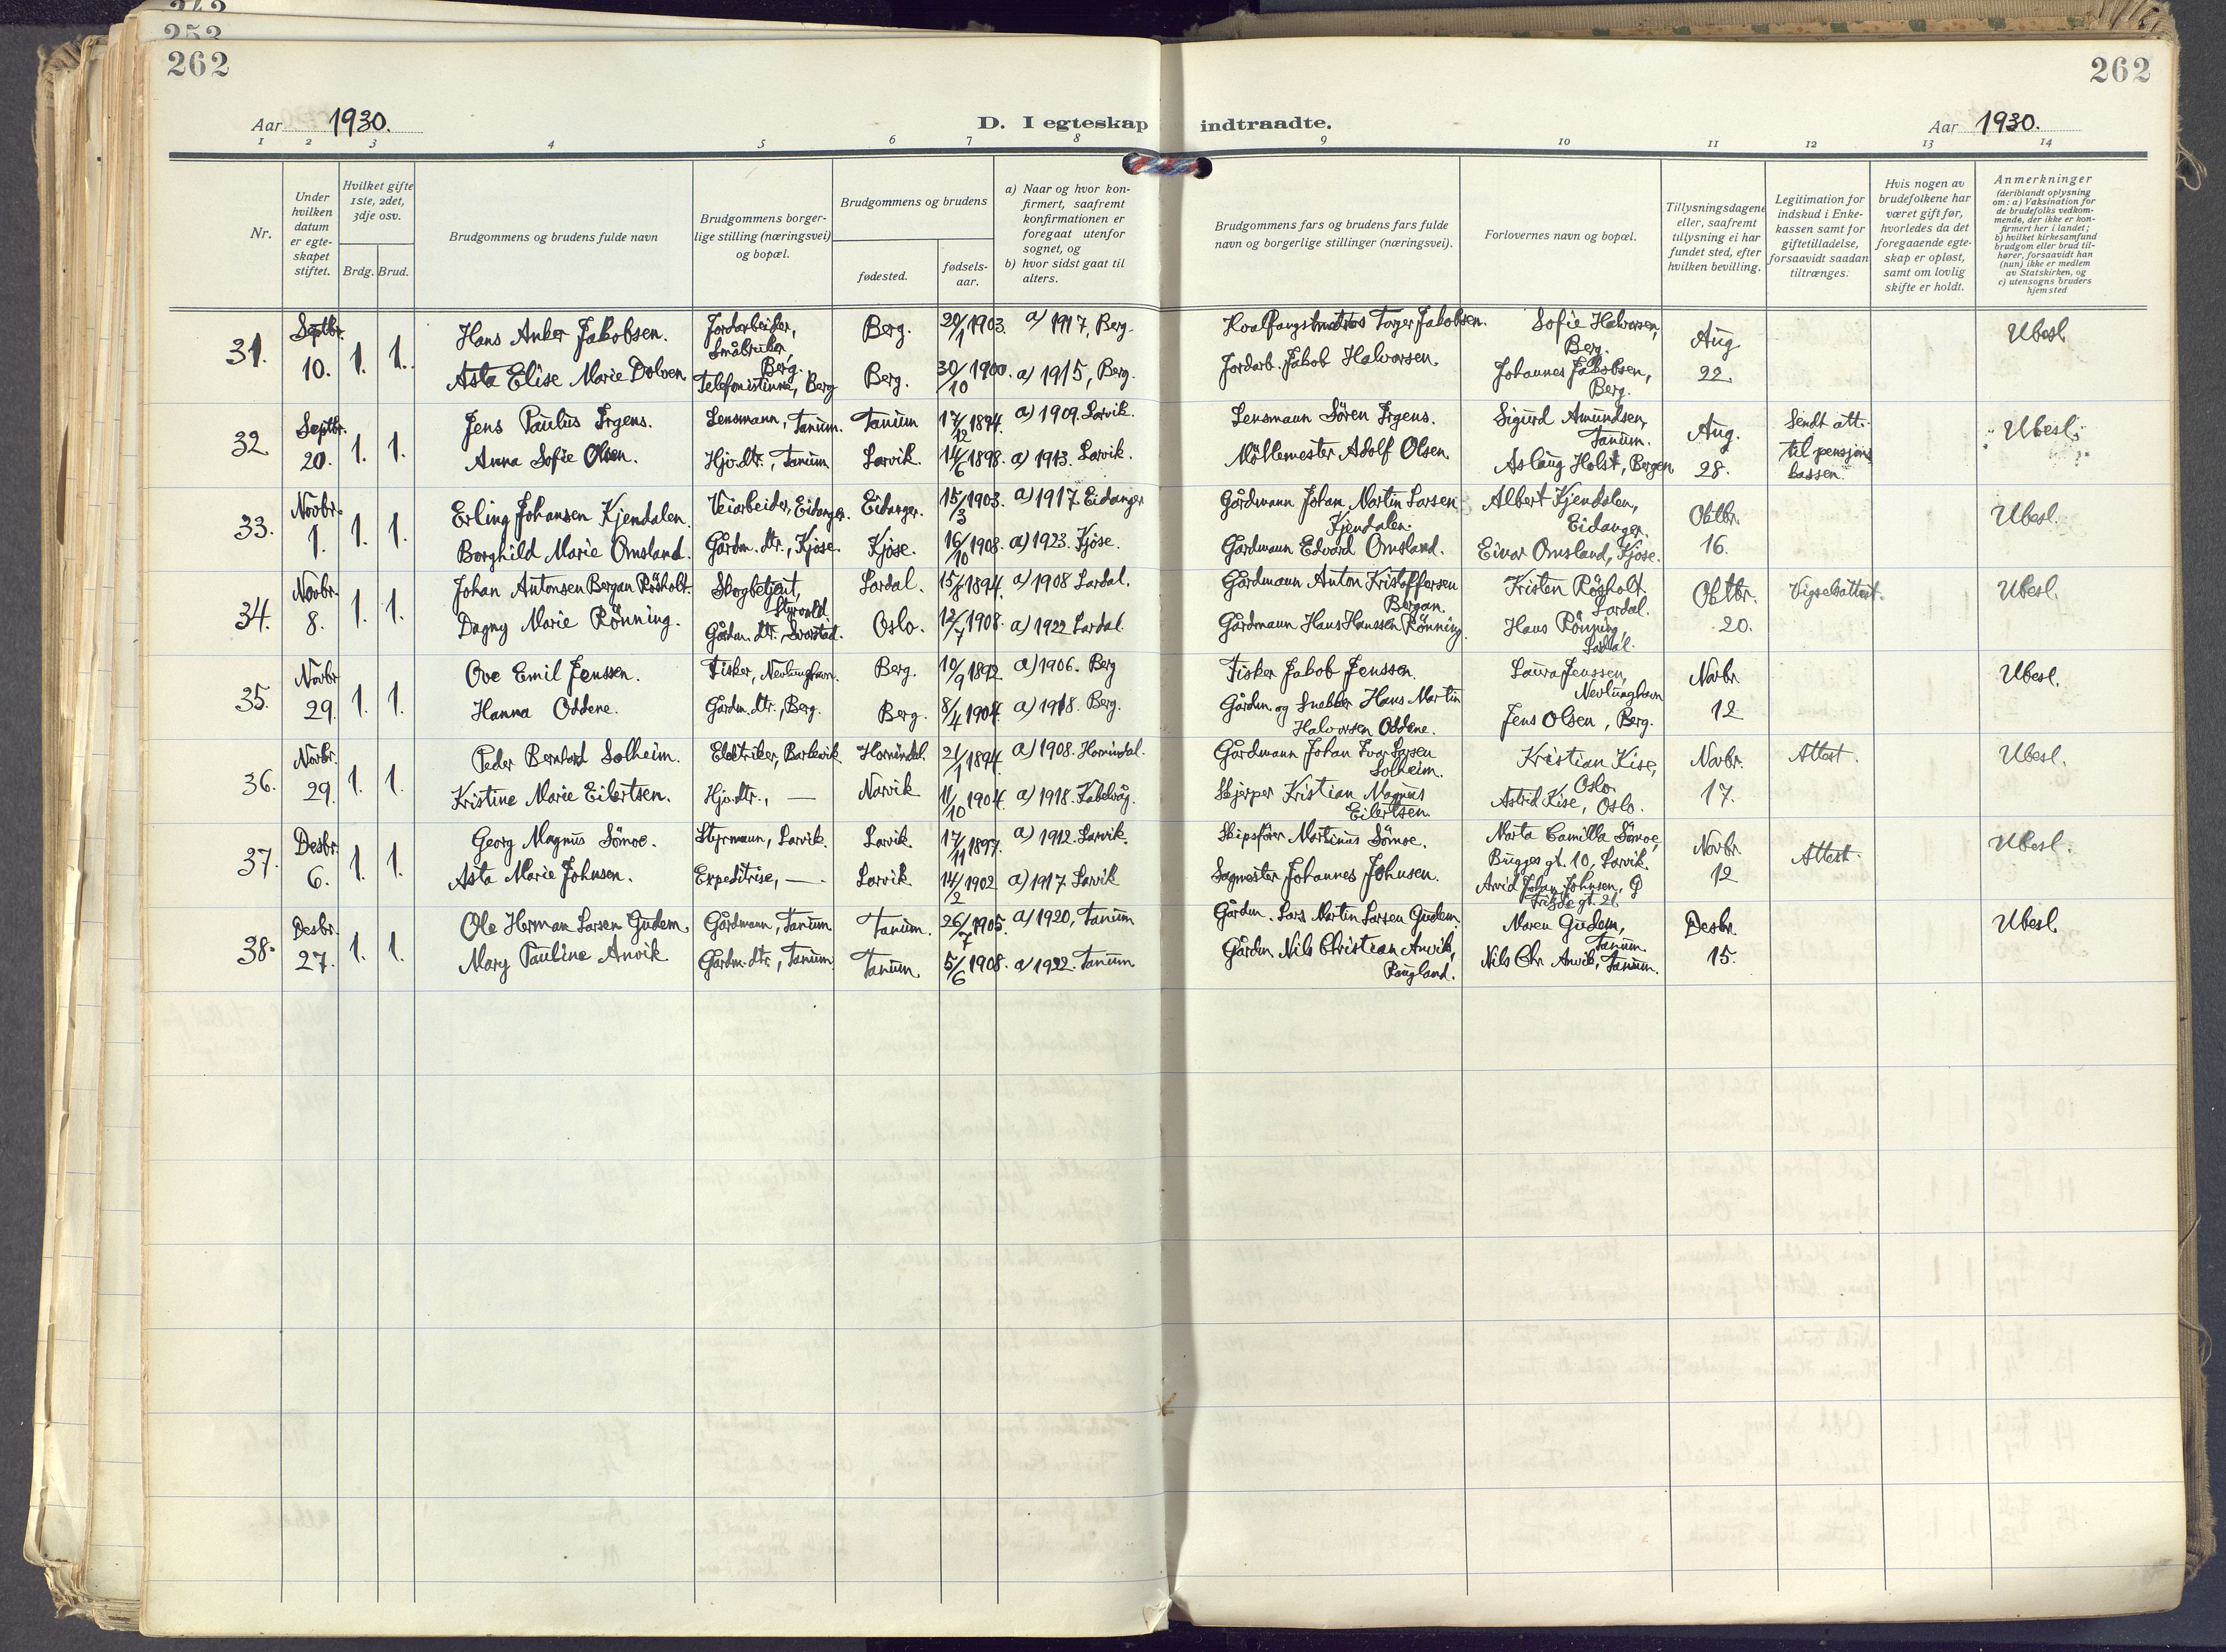 243
253
262
262
Aar 1930.
D. I egteskap indtraadte.
Aar 1930.
1 2 3 4 5 6 7 8 9 10 11 12 13 14
Nr.
Under hvilken datum er egteskapet stiftet.
Hvilket gifte 1ste, 2det, 3dje osv.
Brdg. Brud.
Brudgommens og brudens fulde navn
Brudgommens borgerlige stilling (næringsvei) og bopæl.
Brudgommens og brudens
fødested.
fødselsaar.
a) Naar og hvor konfirmert, saafremt konfirmationen er foregaat utenfor sognet, og
b) hvor sidst gaat til alters.
Brudgommens fars og brudens fars fulde navn og borgerlige stillinger (næringsvei).
Forlovernes navn og bopæl.
Tillysningsdagene eller, saafremt tillysning ei har fundet sted, efter hvilken bevilling.
Legitimation for indskud i Enkekassen samt for giftetilladelse, forsaavidt saadan tiltrænges.
Hvis nogen av brudefolkene har været gift før, hvorledes da det foregaaende egteskap er opløst, samt om lovlig skifte er holdt.
Anmerkninger
(deriblandt oplysning om: a) Vaksination for de brudefolks vedkommende, der ikke er konfirmert her i landet; b) hvilket kirkesamfund brudgom eller brud tilhører, forsaavidt han (hun) ikke er medlem av Statskirken, og c) utensogns bruders hjemsted
31. Septbr. 10. 1. 1.
Hans Anker Jakobsen. Jordarbeider, Småbruker, Berg. Berg. 20/1 1903. a) 1917, Berg. Hvalfangstmatros Torger Jakobsen. Sofie Halvorsen, Berg. Aug 22. Ubesl.
Asta Elise Marie Dolven Telefonistinne, Berg Berg. 30/10 1900. a) 1915, Berg. Jordarb. Jakob Halvorsen. Johannes Jakobsen, Berg.
32. Septbr. 20. 1. 1.
Jens Paulus Irgens. Lensmann, Tanum. Tanum 17/12 1894. a) 1909. Larvik. Lensmann Sören Irgens. Sigurd Amundsen, Tanum. Aug. 28. Sendt att. til pensjonskassen. Ubesl.
Anna Sofie Olsen. Hjv.dtr., Tanum Larvik. 14/6 1898. a) 1913. Larvik. Möllemester Adolf Olsen. Aslaug Holst, Bergen
33. Novbr. 1. 1. 1.
Erling Johansen Kjendalen. Veiarbeider, Eidanger. Eidanger. 15/3 1903. a) 1917. Eidanger Gårdmann Johan Martin Larsen Kjendalen. Albert Kjendalen, Eidanger. Oktbr. 16. Ubesl.
Borghild Marie Omsland. Gårdm. dtr., Kjose. Kjose. 16/10 1908. a) 1923. Kjose. Gårdmann Edvard Omsland. Einar Omsland, Kjose.
34. Novbr. 8. 1. 1.
Johan Antonsen Bergan Rösholt. Skogbetjent, Styrvold. Lardal. 15/8 1894. a) 1908 Lardal. Gårdmann Anton Kristoffersen Bergan. Kristen Rösholt. Lardal. Oktbr. 20. Vigselsattest. Ubesl.
Dagny Marie Rönning. Gårdm. dtr., Svarstad. Oslo. 12/7 1908. a) 1922 Lardal. Gårdmann Hans Hanssen Rönning. Hans Rönning, Lardal.
35. Novbr 29. 1. 1.
Ove Emil Jenssen. Fisker, Nevlunghavn. Berg. 10/9 1892 a) 1906. Berg Fisker Jakob Jenssen. Laura Jenssen, Nevlunghavn Novbr. 12 Ubesl.
Hanna Oddene. Gårdm. dtr., Berg. Berg. 8/4 1904. a) 1918. Berg. Gårdm. og Snekker Hans Martin Halvorsen Oddene. Jens Olsen, Berg.
36. Novbr. 29. 1. 1.
Peder Bernhard Solheim. Elektriker, Barkevik Hornindal. 21/1 1894. a) 1908. Hornindal. Gårdmann Johan Ivar Larsen Solheim. Kristian Kise, Oslo. Novbr. 17. Attest. Ubesl.
Kristine Marie Eilertsen. Hjv.dtr., — Narvik 11/10 1904. a) 1918. Kabelvåg. Skjerper Kristian Magnus Eilertsen. Astrid Kise, Oslo.
37. Desbr. 6. 1. 1.
Georg Magnus Sömoe. Styrmann, Larvik. Larvik. 17/11 1897. a) 1912. Larvik. Skipsfører Martinus Sömoe. Marta Camilla Sömoe, Bugges gt. 10, Larvik. Novbr. 12 Attest. Ubesl.
Asta Marie Johnsen. Expeditrise, —. Larvik 14/2 1902 a) 1917 Larvik Sagmester Johannes Johnsen. Arvid Johan Johnsen, gt. 21.
38. Desbr. 27. 1. 1.
Ole Herman Larsen Gudem. Gårdmann, Tanum Tanum. 26/7 1905. a) 1920, Tanum Gårdm. Lars Martin Larsen Gudem. Maren Gudem, Tanum. Desbr. 15. Ubesl.
Mary Pauline Anvik Gårdm. dtr., Tanum Tanum. 5/6 1908. a) 1922. Tanum Gårdm Nils Christian Anvik, Paugland. Nils Chr. Anvik, Tanum.